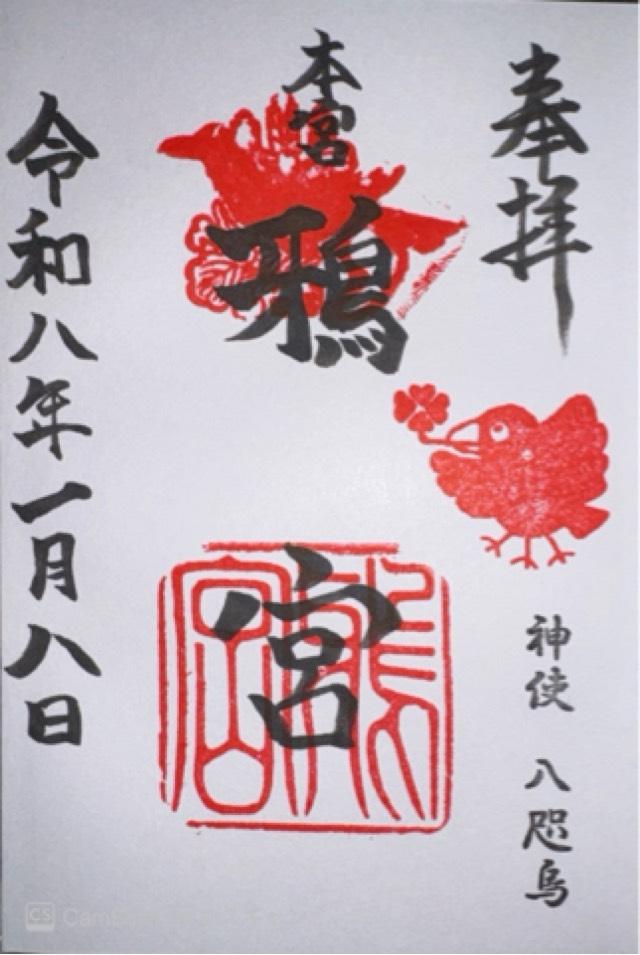 奉拝
神使 八咫烏
本宮
鵶宮
令和八年一月八日
CS CamScanner